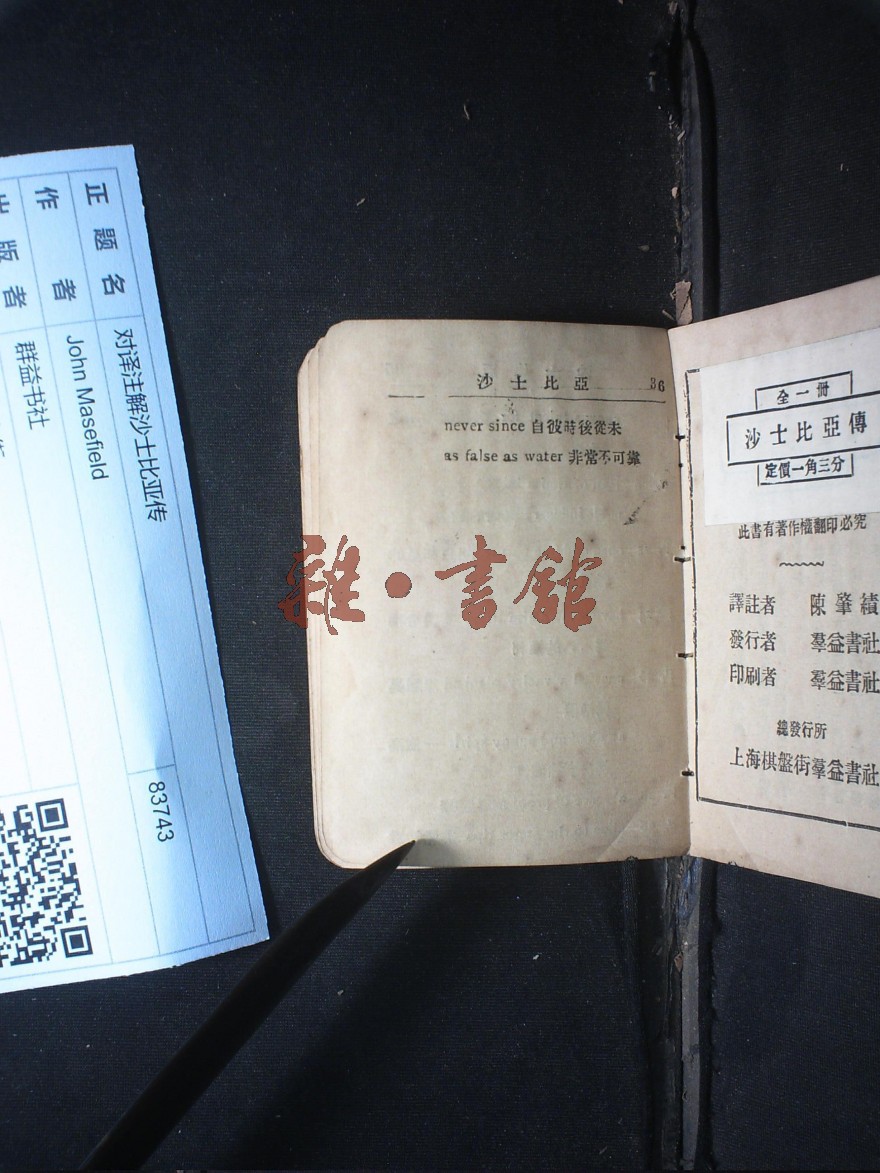 正题名 对译注解沙士比亚传 83743
作者 John Masefield
出版者 群益书社
沙士比亞 36
never since 自彼時後從未
as false as water 非常不可靠
雜·書館
全一冊
沙士比亞傳
定價一角三分
此書有著作權翻印必究
譯註者 陳肇績
發行者 羣益書社
印刷者 羣益書社
總發行所
上海棋盤街羣益書社